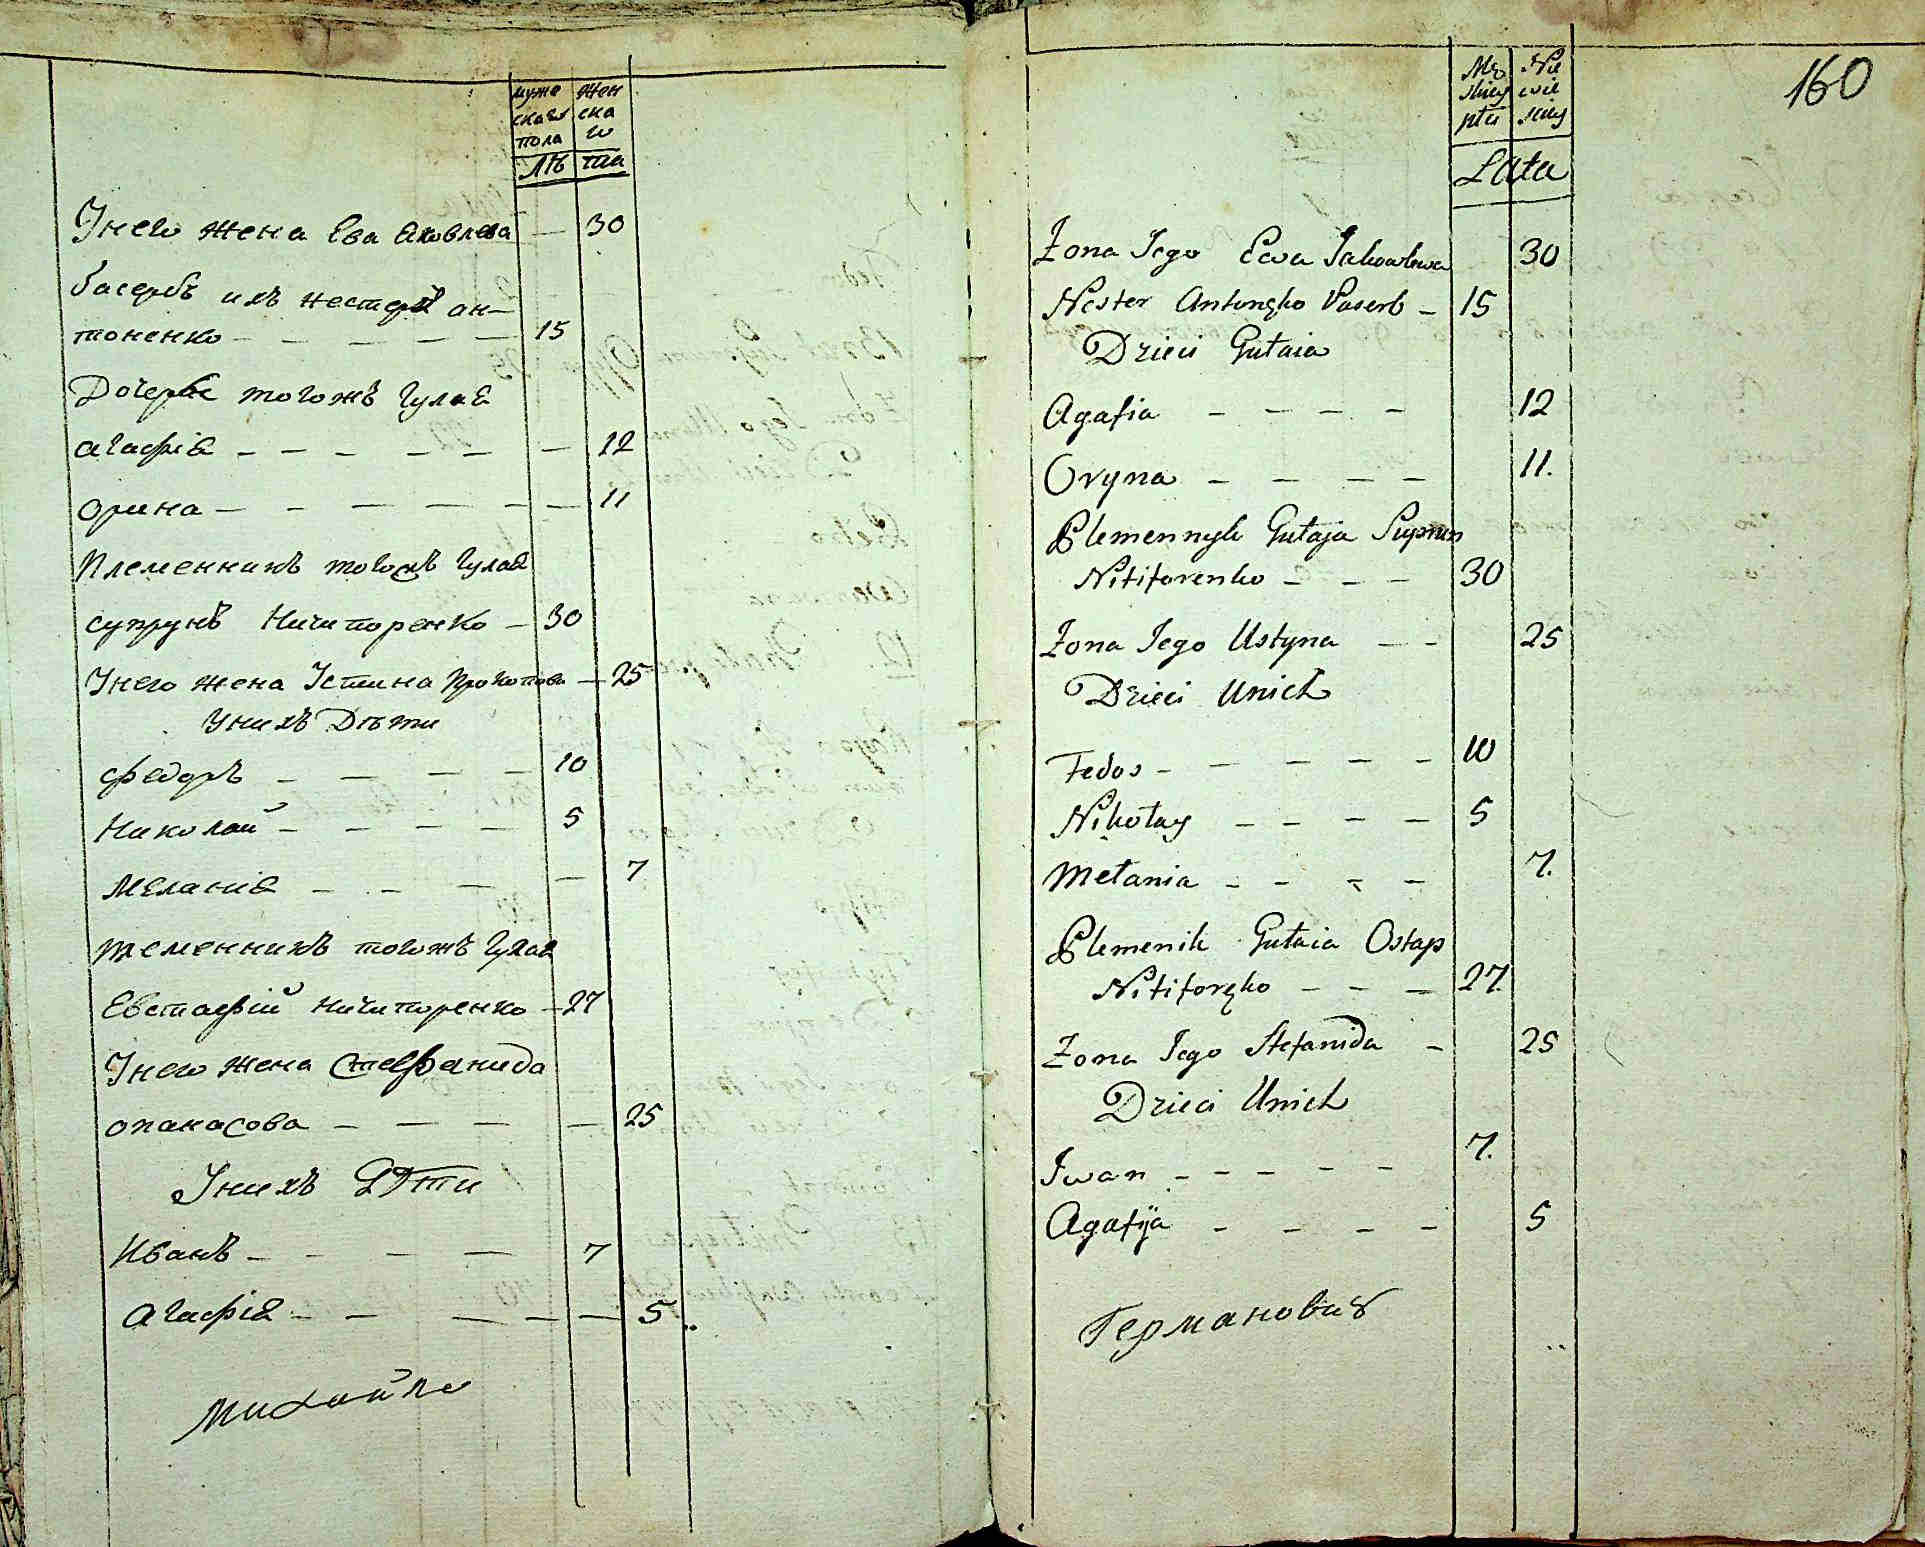 муже
скаго
пола
жен
ска
го
лѣ та
Унего жена Ева Яковлева — 30
Пасербъ ихъ нестеръ ан-
тоненко — — — — — 15
Дочери тогожъ Гулая
агафія — — — — — — 12
орина — — — — — — — 11
Племенникъ тогожъ Гулая
супрунъ Ничипоренко — 30
Унего жена Устина Прокопова — 25
Унихъ Дѣти
федоръ — — — — — 10
Николай — — — — 5
Меланія — — — — 7
племенникъ тогожъ Гулая
Евстафій Ничипоренко — 27
Унего жена Стефанида
опанасова — — — — 25
Унихъ Дѣти
Иванъ — — — — 7
агафія — — — — — 5
михайло
160
Mę
skiey
płci
Nie
wie
skiey
Lata
Żona Jego Ewa Jakowlewa 30
Nester Antonęko Paserb — 15
Dzieci Gułaia
Agafia — — — — 12
Oryna — — — — 11.
Plemennyk Gułaja Suprun
Niťiforenko — — — 30
Żona Jego Ustyna — — 25
Dzieci Unich
Fedos — — — — — — 10
Nikołay — — — — 5
Mełania — — — — 7.
Plemenik Gułaia Ostap
Nitiforęko — — — 27.
Żona Jego Stefanida — 25
Dzieci Unich
Iwan — — — — — 7.
Agafija — — — — 5
Германович